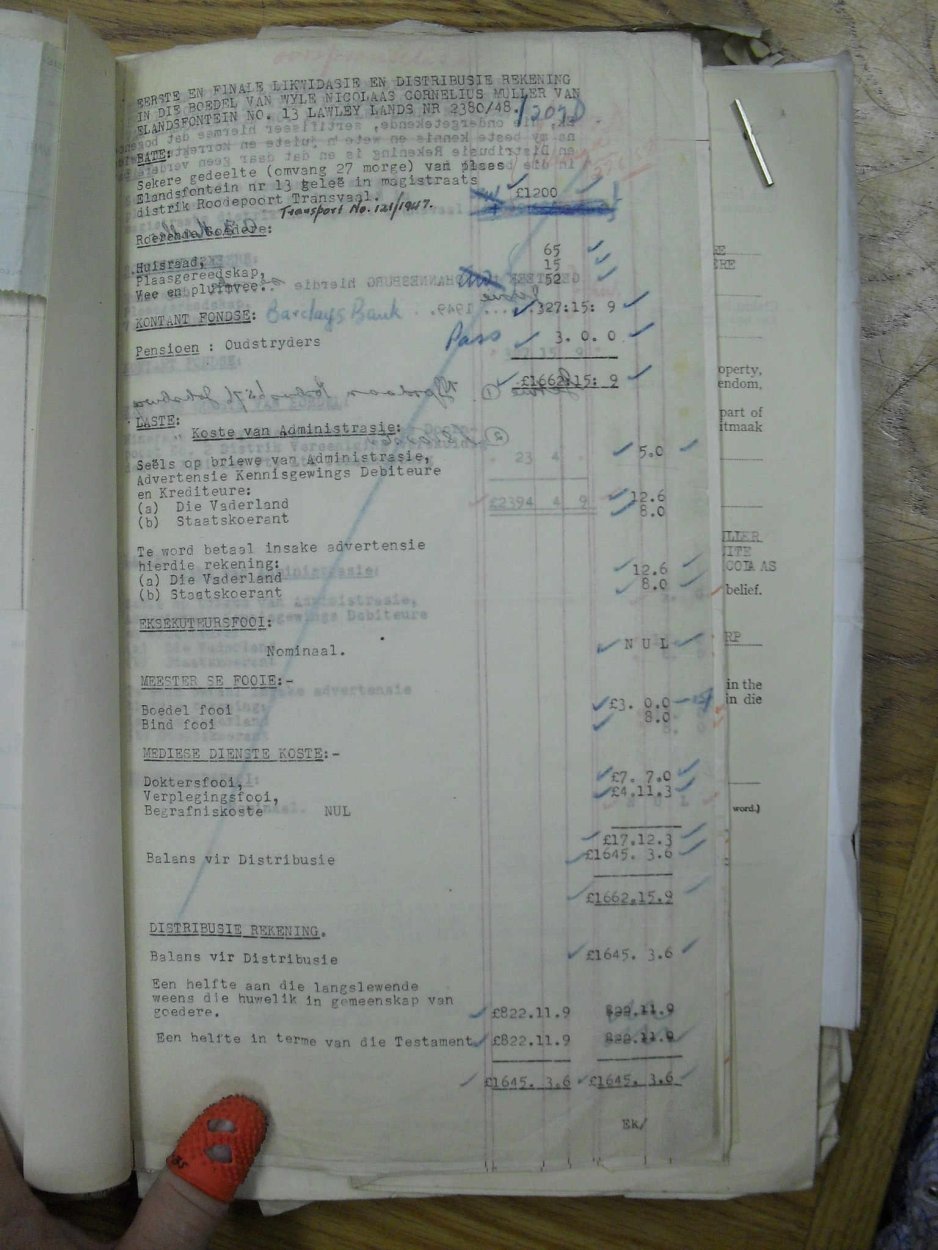 EERSTE EN FINALE LIKWIDASIE EN DISTRIBUSIE REKENING
IN DIE BOEDEL VAN WYLE NICOLAAS CORNELIUS MULLER VAN
ELANDSFONTEIN NO. 13 LAWLEY LANDS NR 2380/48.
BATE:
Sekere gedeelte (omvang 27 morge) van plaas
Elandsfontein nr 13 geleë in magistraats £1200
distrik Roodepoort Transvaal.
Transport No. 121/1947.
Roerende Goedere:
Huisraad, 65
Plaasgereedskap, 15
Vee en pluimvee. 52
KONTANT FONDSE: Barclays Bank 327:15: 9
Pensioen : Oudstryders Pass 3. 0. 0
£1662:15: 9
LASTE:
Koste van Administrasie:
Seëls op briewe van Administrasie, 5.0
Advertensie Kennisgewings Debiteure
en Krediteure:
(a) Die Vaderland 12.6
(b) Staatskoerant 8.0
Te word betaal insake advertensie
hierdie rekening:
(a) Die Vaderland 12.6
(b) Staatskoerant 8.0
EKSEKUTEURSFOOI:
Nominaal. N U L
MEESTER SE FOOIE:-
Boedel fooi £3. 0.0
Bind fooi 8.0
MEDIESE DIENSTE KOSTE:-
Doktersfooi, £7. 7.0
Verplegingsfooi, £4.11.3
Begrafniskoste NUL
£17.12.3
Balans vir Distribusie £1645. 3.6
£1662.15.9
DISTRIBUSIE REKENING.
Balans vir Distribusie £1645. 3.6
Een helfte aan die langslewende
weens die huwelik in gemeenskap van
goedere. £822.11.9 822.11.9
Een helfte in terme van die Testament £822.11.9 822.11.9
£1645. 3.6 £1645. 3.6
Ek/
operty,
endom,
part of
itmaak
LLER
ITE
COLAAS
belief.
RP
in the
in die
word.)